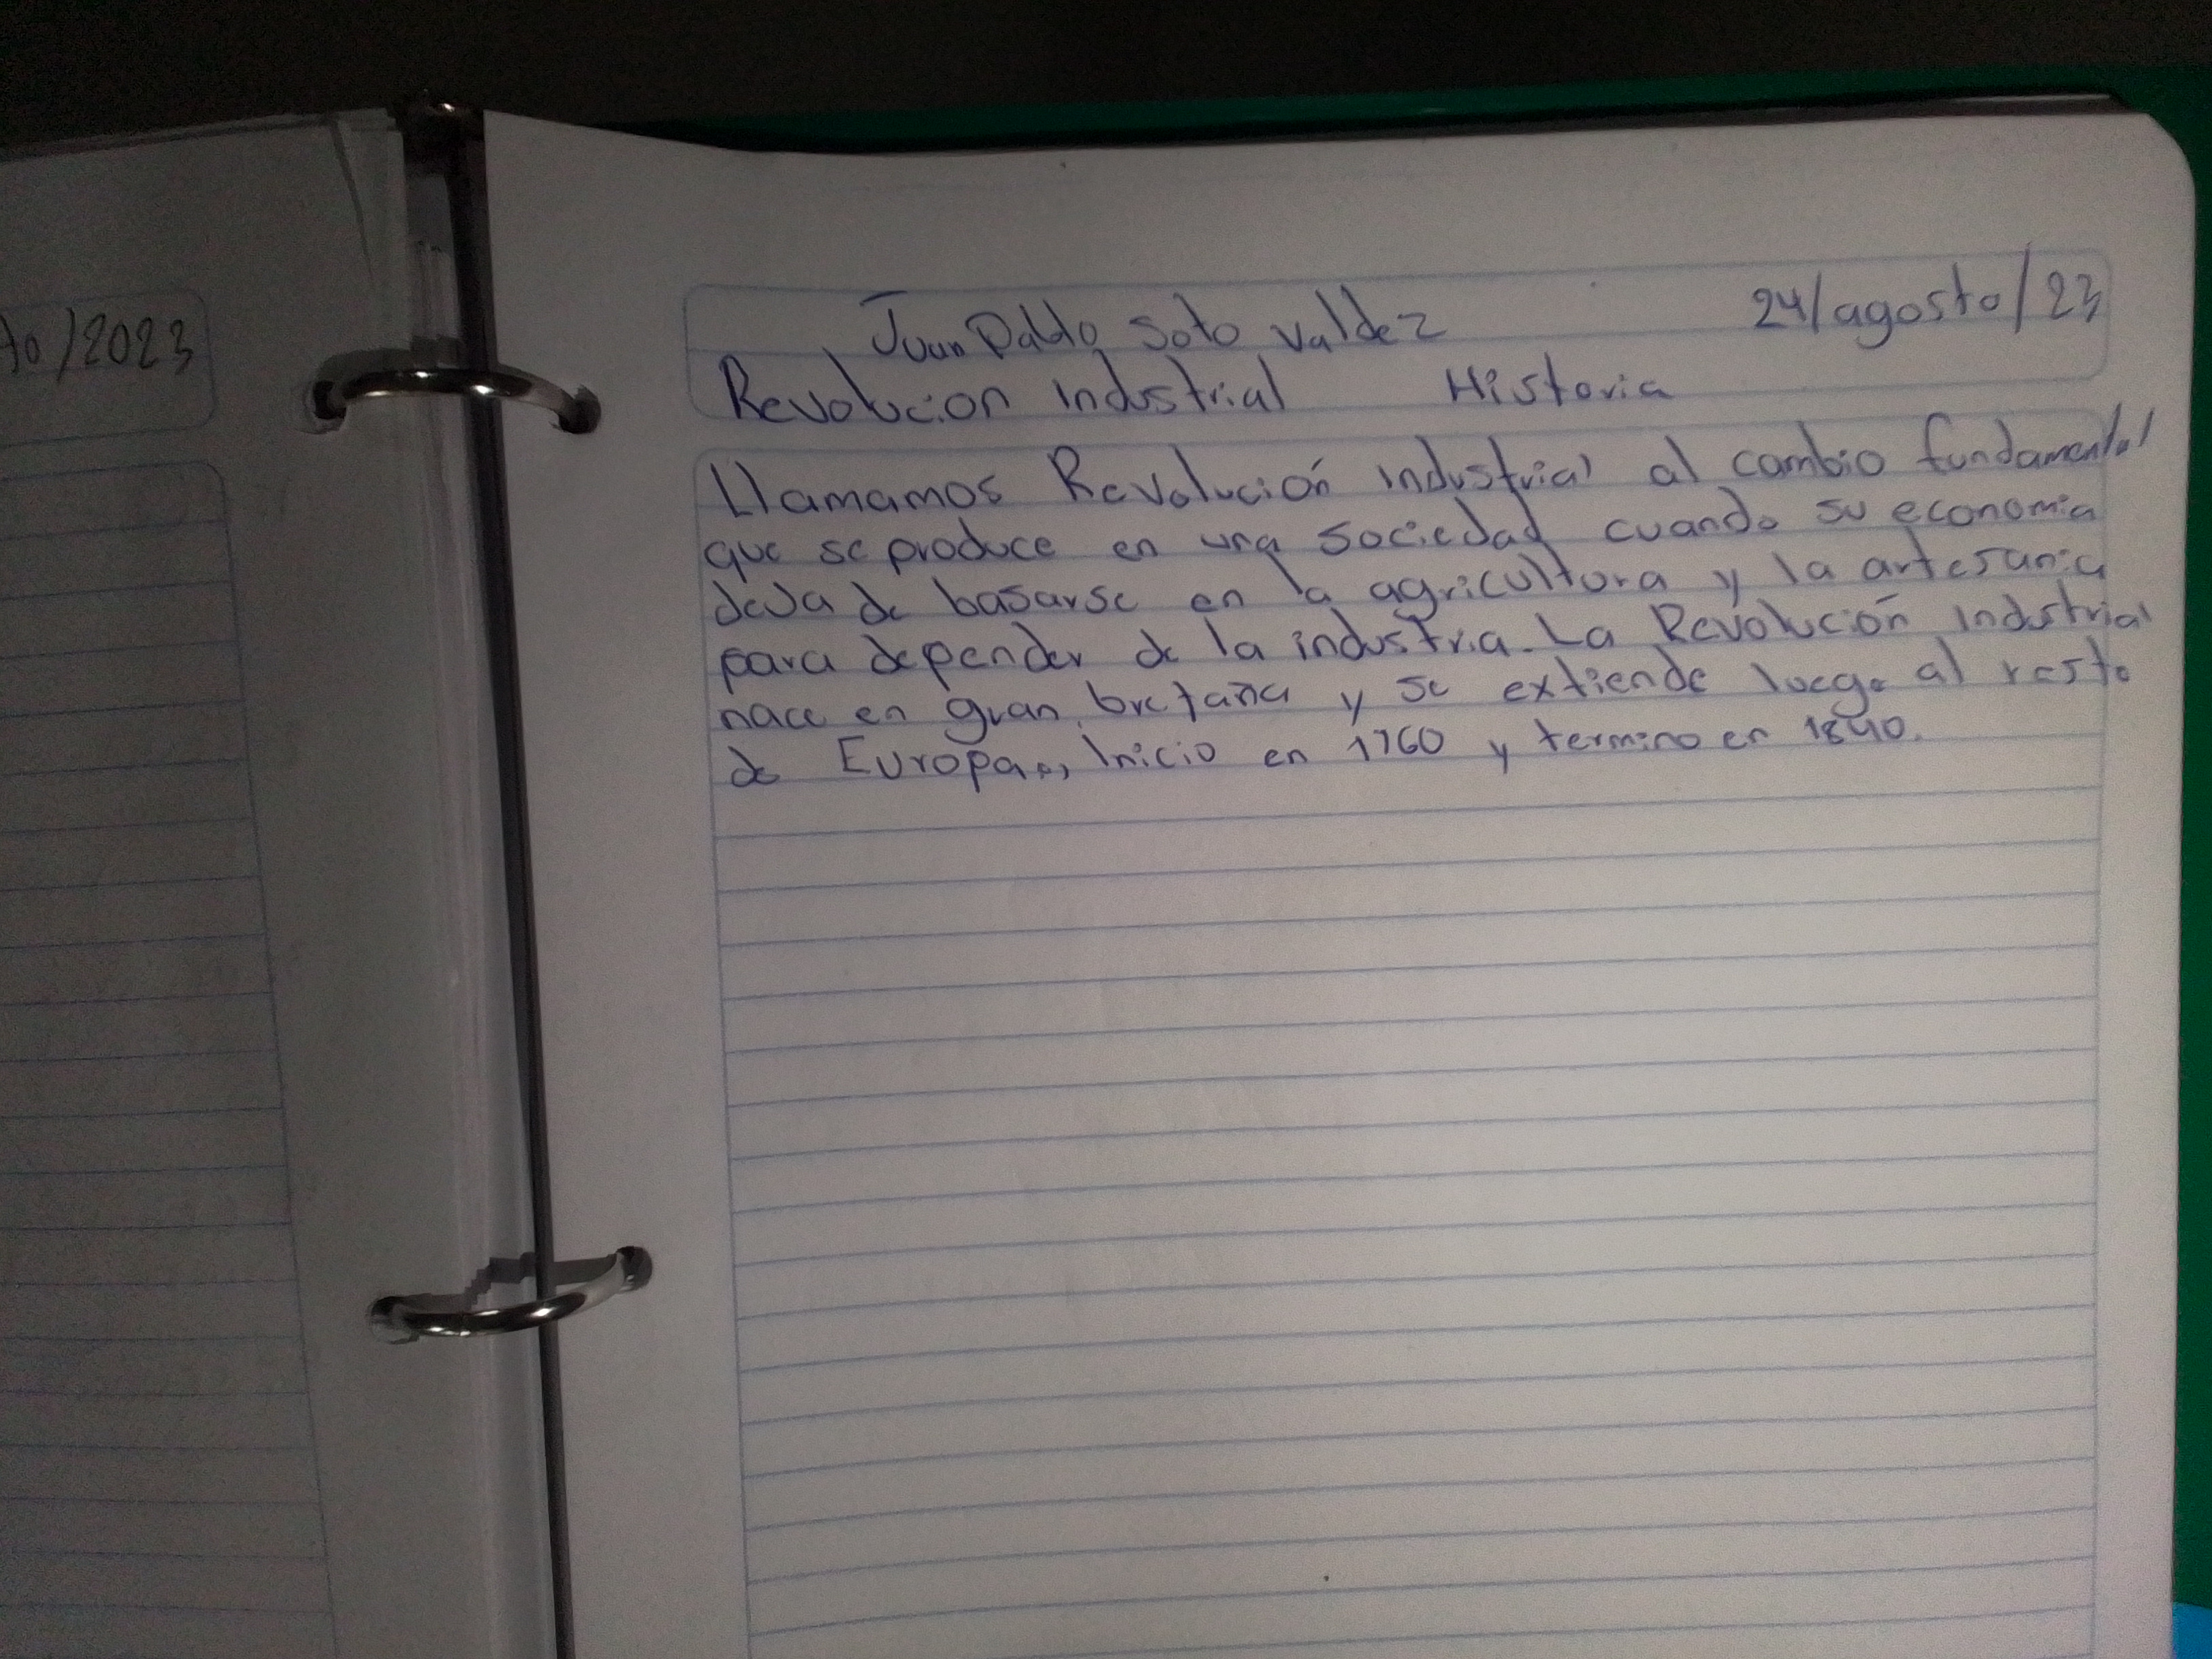 to/2023
Juan Pablo Soto Valdez 24/agosto/23
Revolucion Industrial Historia
Llamamos Revolución Industrial al cambio fundamental
que se produce en una sociedad cuando su economia
deja de basarse en la agricultura y la artesania
para depender de la industria. La Revolución Industrial
nace en gran bretaña y se extiende luego al resto
de Europa.., Inicio en 1760 y termino en 1840.